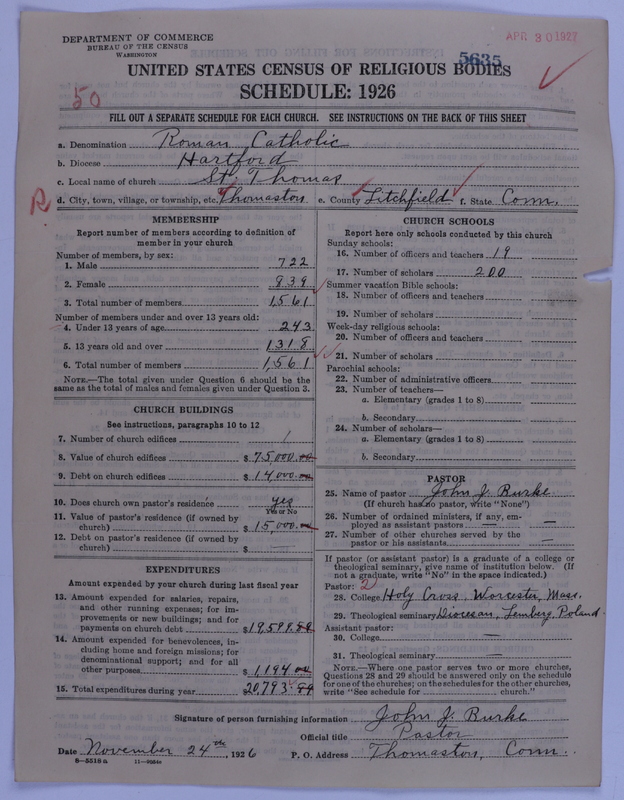 DEPARTMENT OF COMMERCE
BUREAU OF THE CENSUS
WASHINGTON
APR 30 1927
5635
UNITED STATES CENSUS OF RELIGIOUS BODIES
SCHEDULE: 1926
50
FILL OUT A SEPARATE SCHEDULE FOR EACH CHURCH. SEE INSTRUCTIONS ON THE BACK OF THIS SHEET
a. Denomination Roman Catholic
b. Diocese Hartford
c. Local name of church St. Thomas
R
d. City, town, village, or township, etc. Thomaston e. County Litchfield f. State Conn.
MEMBERSHIP
Report number of members according to definition of
member in your church
Number of members, by sex:
1. Male 722
2. Female 839
3. Total number of members 1,561
Number of members under and over 13 years old:
4. Under 13 years of age 243
5. 13 years old and over 1318
6. Total number of members 1,561
NOTE.—The total given under Question 6 should be the
same as the total of males and females given under Question 3.
CHURCH BUILDINGS
See instructions, paragraphs 10 to 12
7. Number of church edifices 1
8. Value of church edifices $ 75,000.00
9. Debt on church edifices $ 14000.00
10. Does church own pastor's residence yes
Yes or No
11. Value of pastor's residence (if owned by
church) $ 15,000.
12. Debt on pastor's residence (if owned by
church) $ —
EXPENDITURES
Amount expended by your church during last fiscal year
13. Amount expended for salaries, repairs,
and other running expenses; for im-
provements or new buildings; and for
payments on church debt $ 19599.
14. Amount expended for benevolences, in-
cluding home and foreign missions; for
denominational support; and for all
other purposes $ 1194 00
15. Total expenditures during year $ 20,793.
CHURCH SCHOOLS
Report here only schools conducted by this church
Sunday schools:
16. Number of officers and teachers 19
17. Number of scholars 200
Summer vacation Bible schools:
18. Number of officers and teachers
19. Number of scholars
Week-day religious schools:
20. Number of officers and teachers
21. Number of scholars
Parochial schools:
22. Number of administrative officers
23. Number of teachers—
a. Elementary (grades 1 to 8)
b. Secondary
24. Number of scholars—
a. Elementary (grades 1 to 8)
b. Secondary
PASTOR
25. Name of pastor John J. Burke
(If church has no pastor, write "None")
26. Number of ordained ministers, if any, em-
ployed as assistant pastors — —
27. Number of other churches served by the
pastor or his assistants —
If pastor (or assistant pastor) is a graduate of a college or
theological seminary, give name of institution below. (If
not a graduate, write "No" in the space indicated.)
Pastor: 2
28. College Holy Cross, Worcester, Mass.
29. Theological seminary Diocesan, Lemberg, Poland.
Assistant pastor:
30. College —
31. Theological seminary —
NOTE.—Where one pastor serves two or more churches,
Questions 28 and 29 should be answered only on the schedule
for one of the churches; on the schedules for the other churches,
write "See schedule for church."
Signature of person furnishing information John J. Burke
Official title Pastor
Date November 24th, 1926 P. O. Address Thomaston, Conn.
8—5518 a